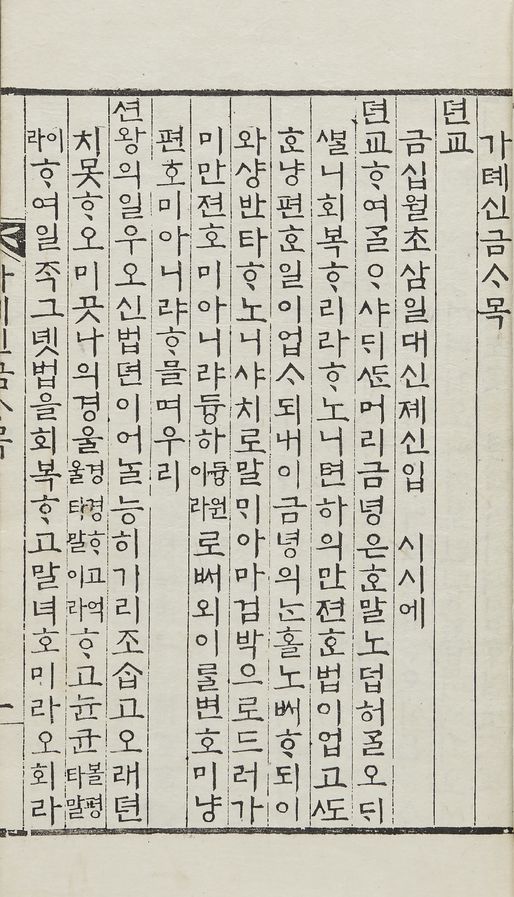 가톄신금ᄉᆞ목
뎐교
금십월초삼일대신졔신입 시시에
뎐교ᄒᆞ여ᄀᆞᆯᄋᆞ샤ᄃᆡᄯᆞᆫ머리금녕은ᄒᆞᆫ말노덥허ᄀᆞᆯ오ᄃᆡ
ᄲᆞᆯ니회복ᄒᆞ리라ᄒᆞ노니텬하의만젼ᄒᆞᆫ법이업고ᄯᅩ
ᄒᆞᆫ냥편ᄒᆞᆫ일이업ᄉᆞ되내이금녕의ᄂᆞᆫ홀노ᄡᅥᄒᆞ되이
와샹반타ᄒᆞ노니샤치로말ᄆᆡ아마검박으로드러가
미만젼호미아니랴듕하듕원이라로ᄡᅥ외이ᄅᆞᆯ변호미냥
편호미아니랴ᄒᆞ믈며우리
션왕의일우오신법뎐이어ᄂᆞᆯ능히기리조ᄉᆞᆸ고오래텬
치못ᄒᆞ오미ᄭᅳᆺ나의경울경경ᄒᆞ고억울타말이라ᄒᆞ고균볼평타말
이라ᄒᆞ여일즉그녯법을회복ᄒᆞ고말녀호미라오회라